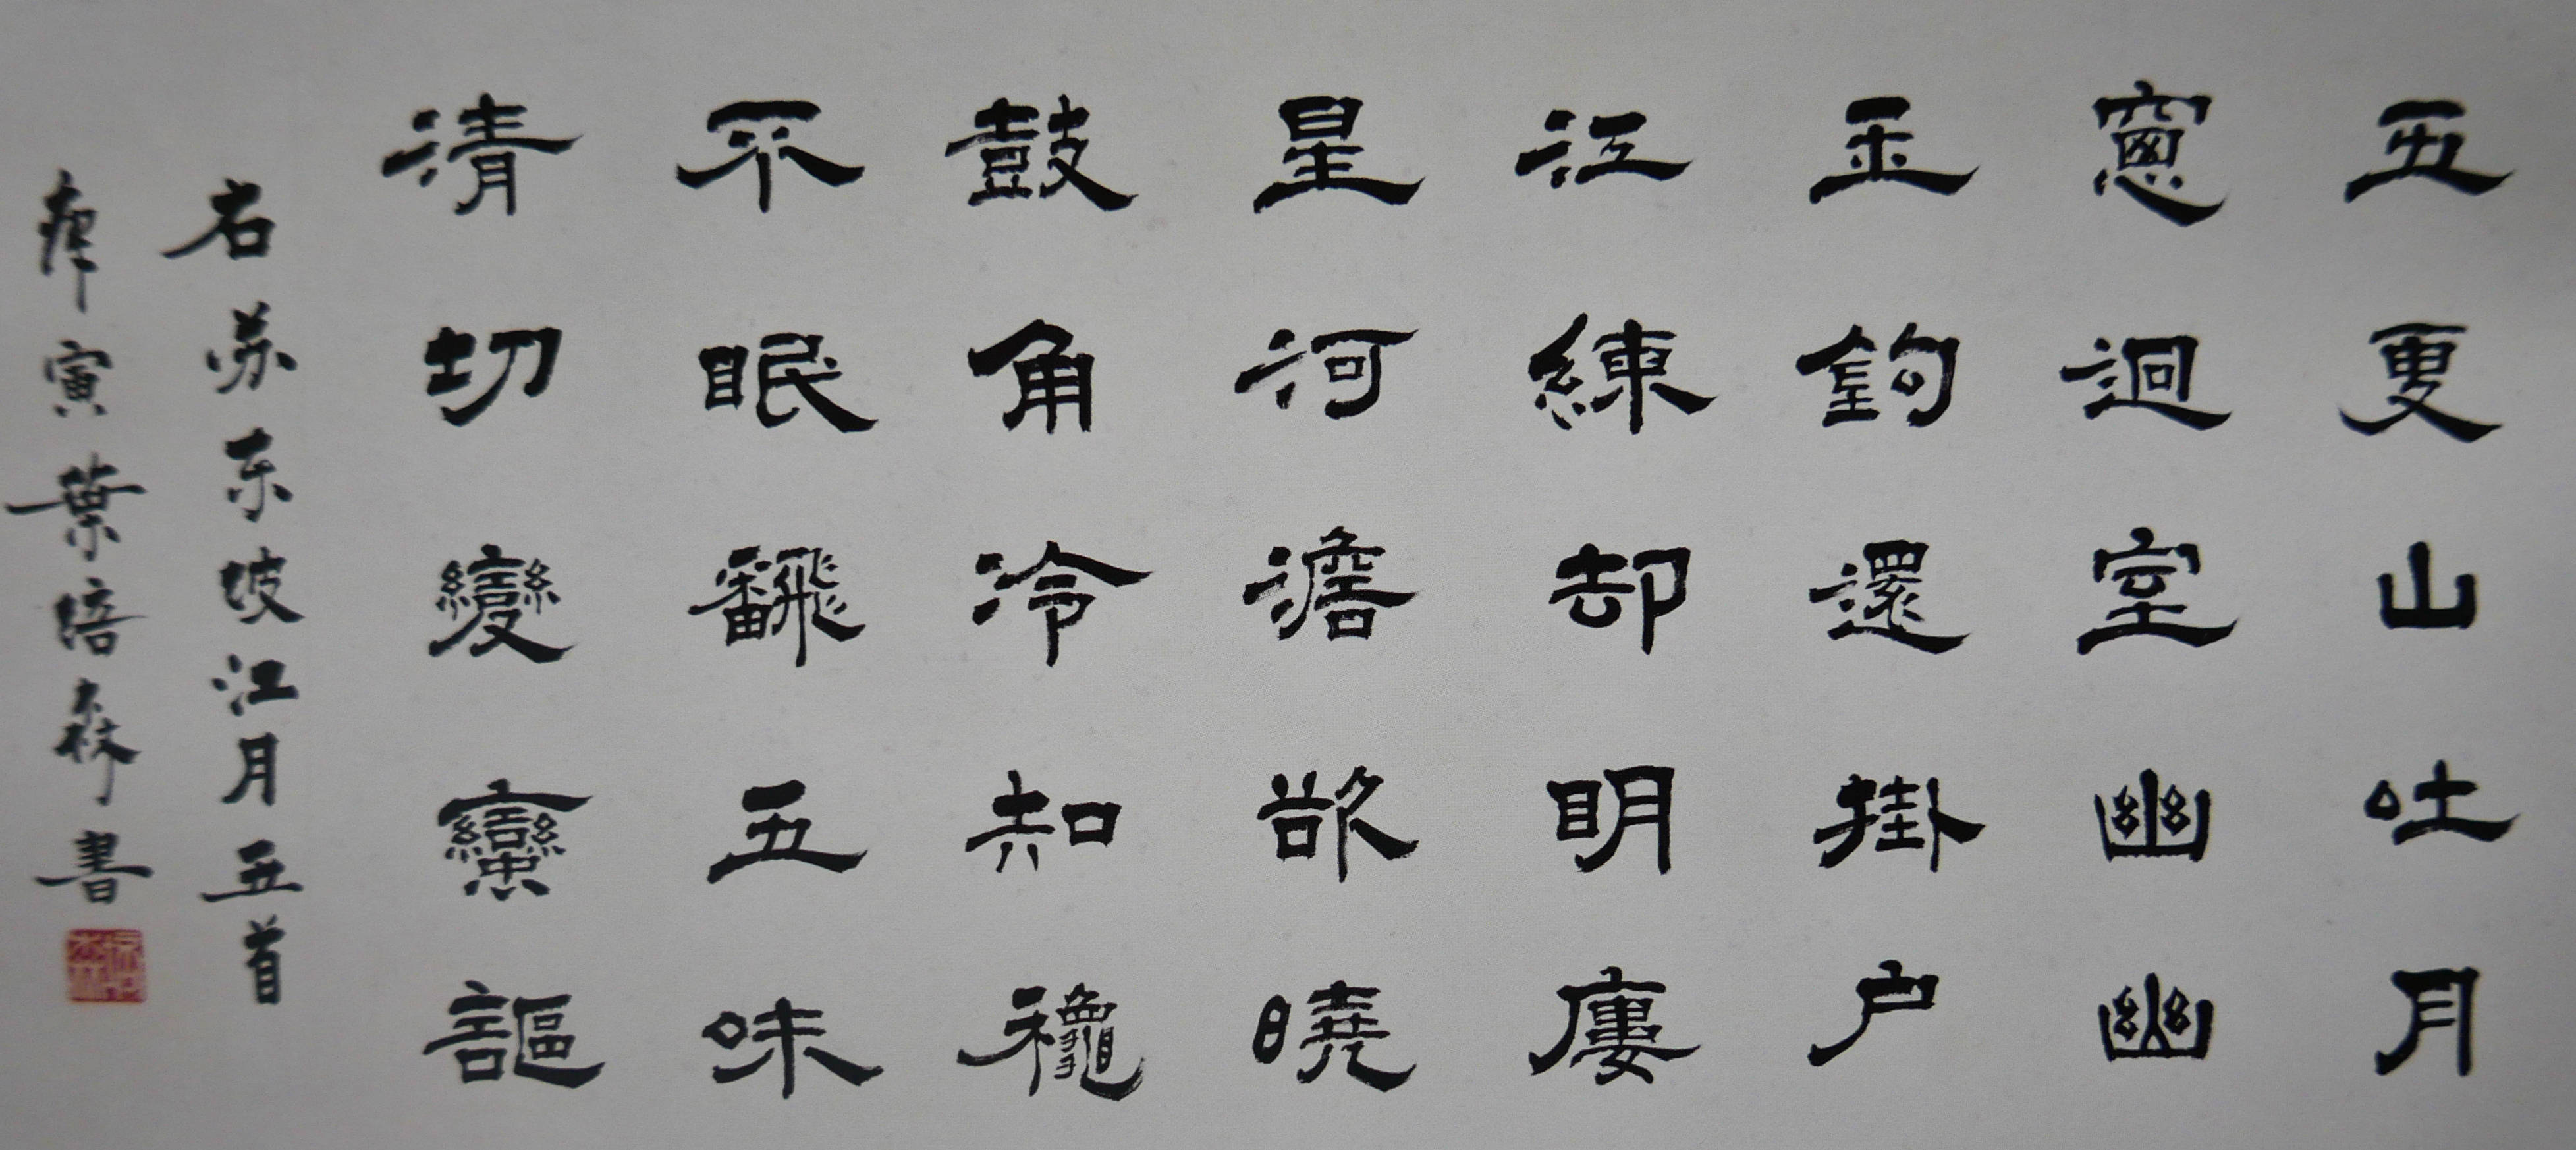 五更山吐月
窻迥室幽幽
玉鉤還掛户
江練却明廔
星河澹欲曉
鼓角冷知龝
不眠飜五味
清切變蠻謳
右苏东坡江月五首
庚寅葉培森書